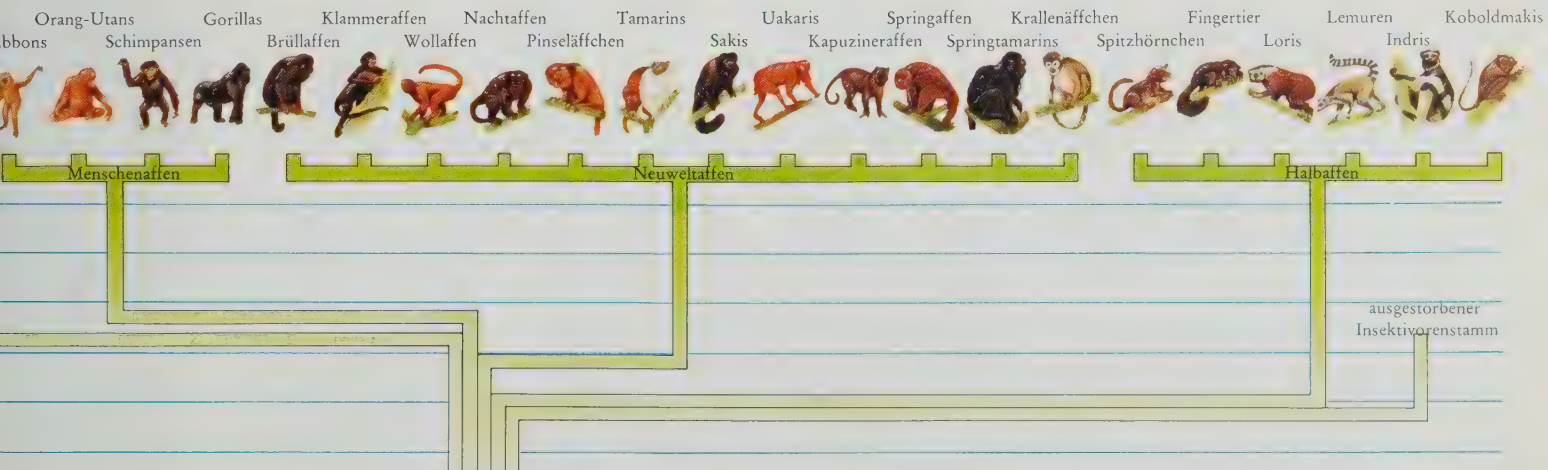 Orang-Utans Gorillas Klammeraffen Nachtaffen Tamarins Uakaris Springaffen Krallenäffchen Fingertier Lemuren Koboldmakis
bbons Schimpansen Brüllaffen Wollaffen Pinseläffchen Sakis Kapuzineraffen Springtamarins Spitzhörnchen Loris Indris
Menschenaffen Neuweltaffen Halbaffen
ausgestorbener
Insektivorenstamm